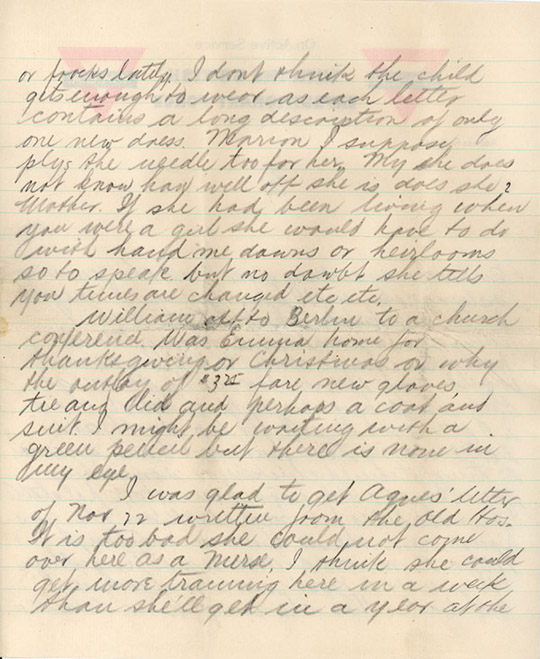 or frocks lately. I dont think the child
gets enough to wear as each letter
contains a long description of only
one new dress. Marion I suppose
plys the needle too for her. My she does
not know how well off she is does she?
Mother. If she had been living when
you were a girl she would have to do
with hand me downs or heirlooms
so to speak but no doubt she tells
you times are changed etc etc.
William off to Berlin to a church
conference. Was Emma home for
thanksgiving or Christmas or why
the outlay of $3 fare new gloves
tie and lid and perhaps a coat and
suit. I might be writing with a
green pencil but there is none in
my eye.
I was glad to get Agnes' letter
of Nov 22 written from the Old Hos.
It is too bad she could not come
over here as a nurse. I think she could
get more training here in a week
than she'll get in a year at the